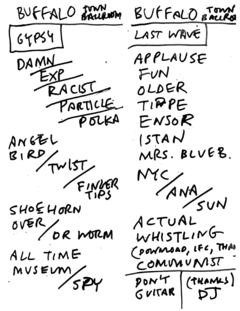 BUFFALO TOWN BALLROOM
GYPSY
DAMN
EXP
RACIST
PARTICLE
POLKA
ANGEL
BIRD/
TWIST/
FINGER
TIPS
SHOEHORN
OVER/
OR WORM
ALL TIME
MUSEUM/
SPY
BUFFALO TOWN BALLROOM
LAST WAVE
APPLAUSE
FUN
OLDER
TIPPE
ENSOR
ISTAN
MRS. BLUEB.
NYC/
ANA/
SUN
ACTUAL
WHISTLING
(DOWNLOAD, IFC,
COMMUNIST
DON'T
GUITAR
(THANKS)
DJ